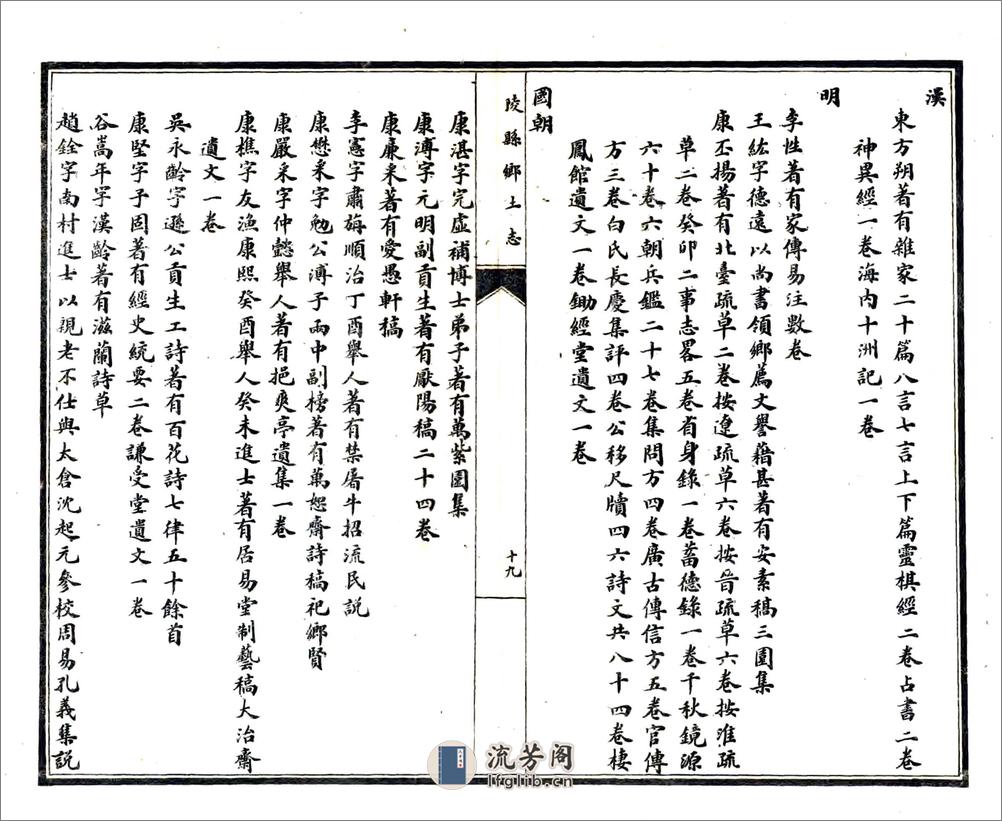 漢
東方朔著有雜家二十篇八言七言上下篇靈棋經二卷占書二卷
神異經一卷海內十洲記一卷
明
李性著有家傳易注數卷
王紘字德遠以尚書領鄉薦文譽藉甚著有安素稿三園集
康丕揚著有北臺疏草二卷按遼疏草六卷按晉疏草六卷按淮疏
草二卷癸卯二事志畧五卷省身錄一卷蓄德錄一卷千秋鏡源
六十卷六朝兵鑑二十七卷集問方四卷廣古傳信方五卷官傳
方三卷白氏長慶集評四卷公移尺牘四六詩文共八十四卷棲
鳳館遺文一卷鋤經堂遺文一卷
國朝
陵縣鄉土志
十九
康湛字完虛補博士弟子著有萬紫園集
康溥字元明副貢生著有厭陽稿二十四卷
康廉采著有愛愚軒稿
李憲字肅旃順治丁酉舉人著有禁屠牛招流民說
康懋采字勉公溥子兩中副榜著有萬恕齋詩稿祀鄉賢
康嚴采字仲懿舉人著有挹爽亭遺集一卷
康樵字友漁康熙癸酉舉人癸未進士著有居易堂制藝稿大治齋
遺文一卷
吳永齡字遜公貢生工詩著有百花詩七律五十餘首
康堅字子固著有經史統要二卷謙受堂遺文一卷
谷嵩年字漢齡著有滋蘭詩草
趙銓字南村進士以親老不仕與太倉沈起元參校周易孔義集說
流芳阁
lfglib.cn